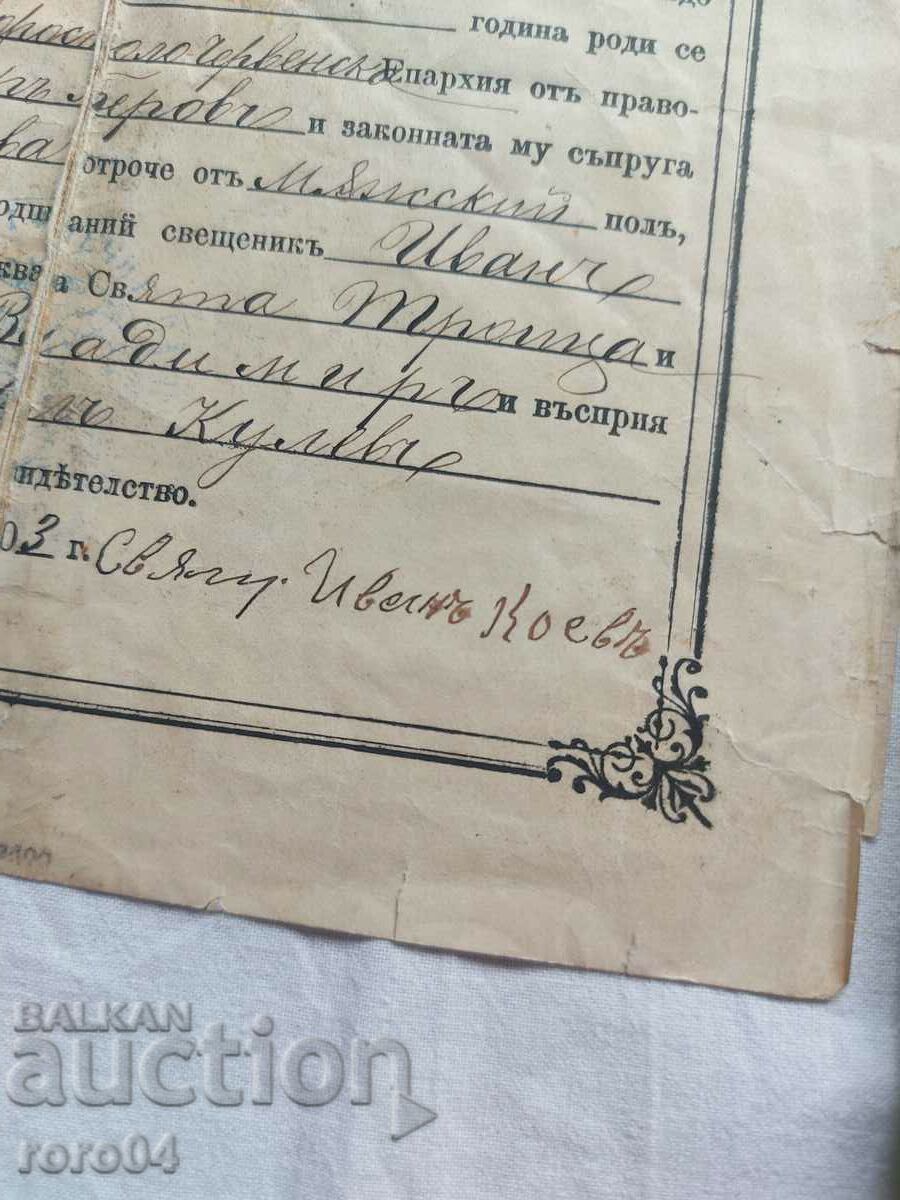 година роди се
Червенска Епархия отъ право-
и законната му съпруга
отроче отъ Мѫжский полъ,
свещеникъ Иванъ
Свята Троица и
Владимиръ и въсприя
Кулевъ
идѣтелство.
03 г. Свящ. Иванъ Коевъ
BALKAN
auction
roro04